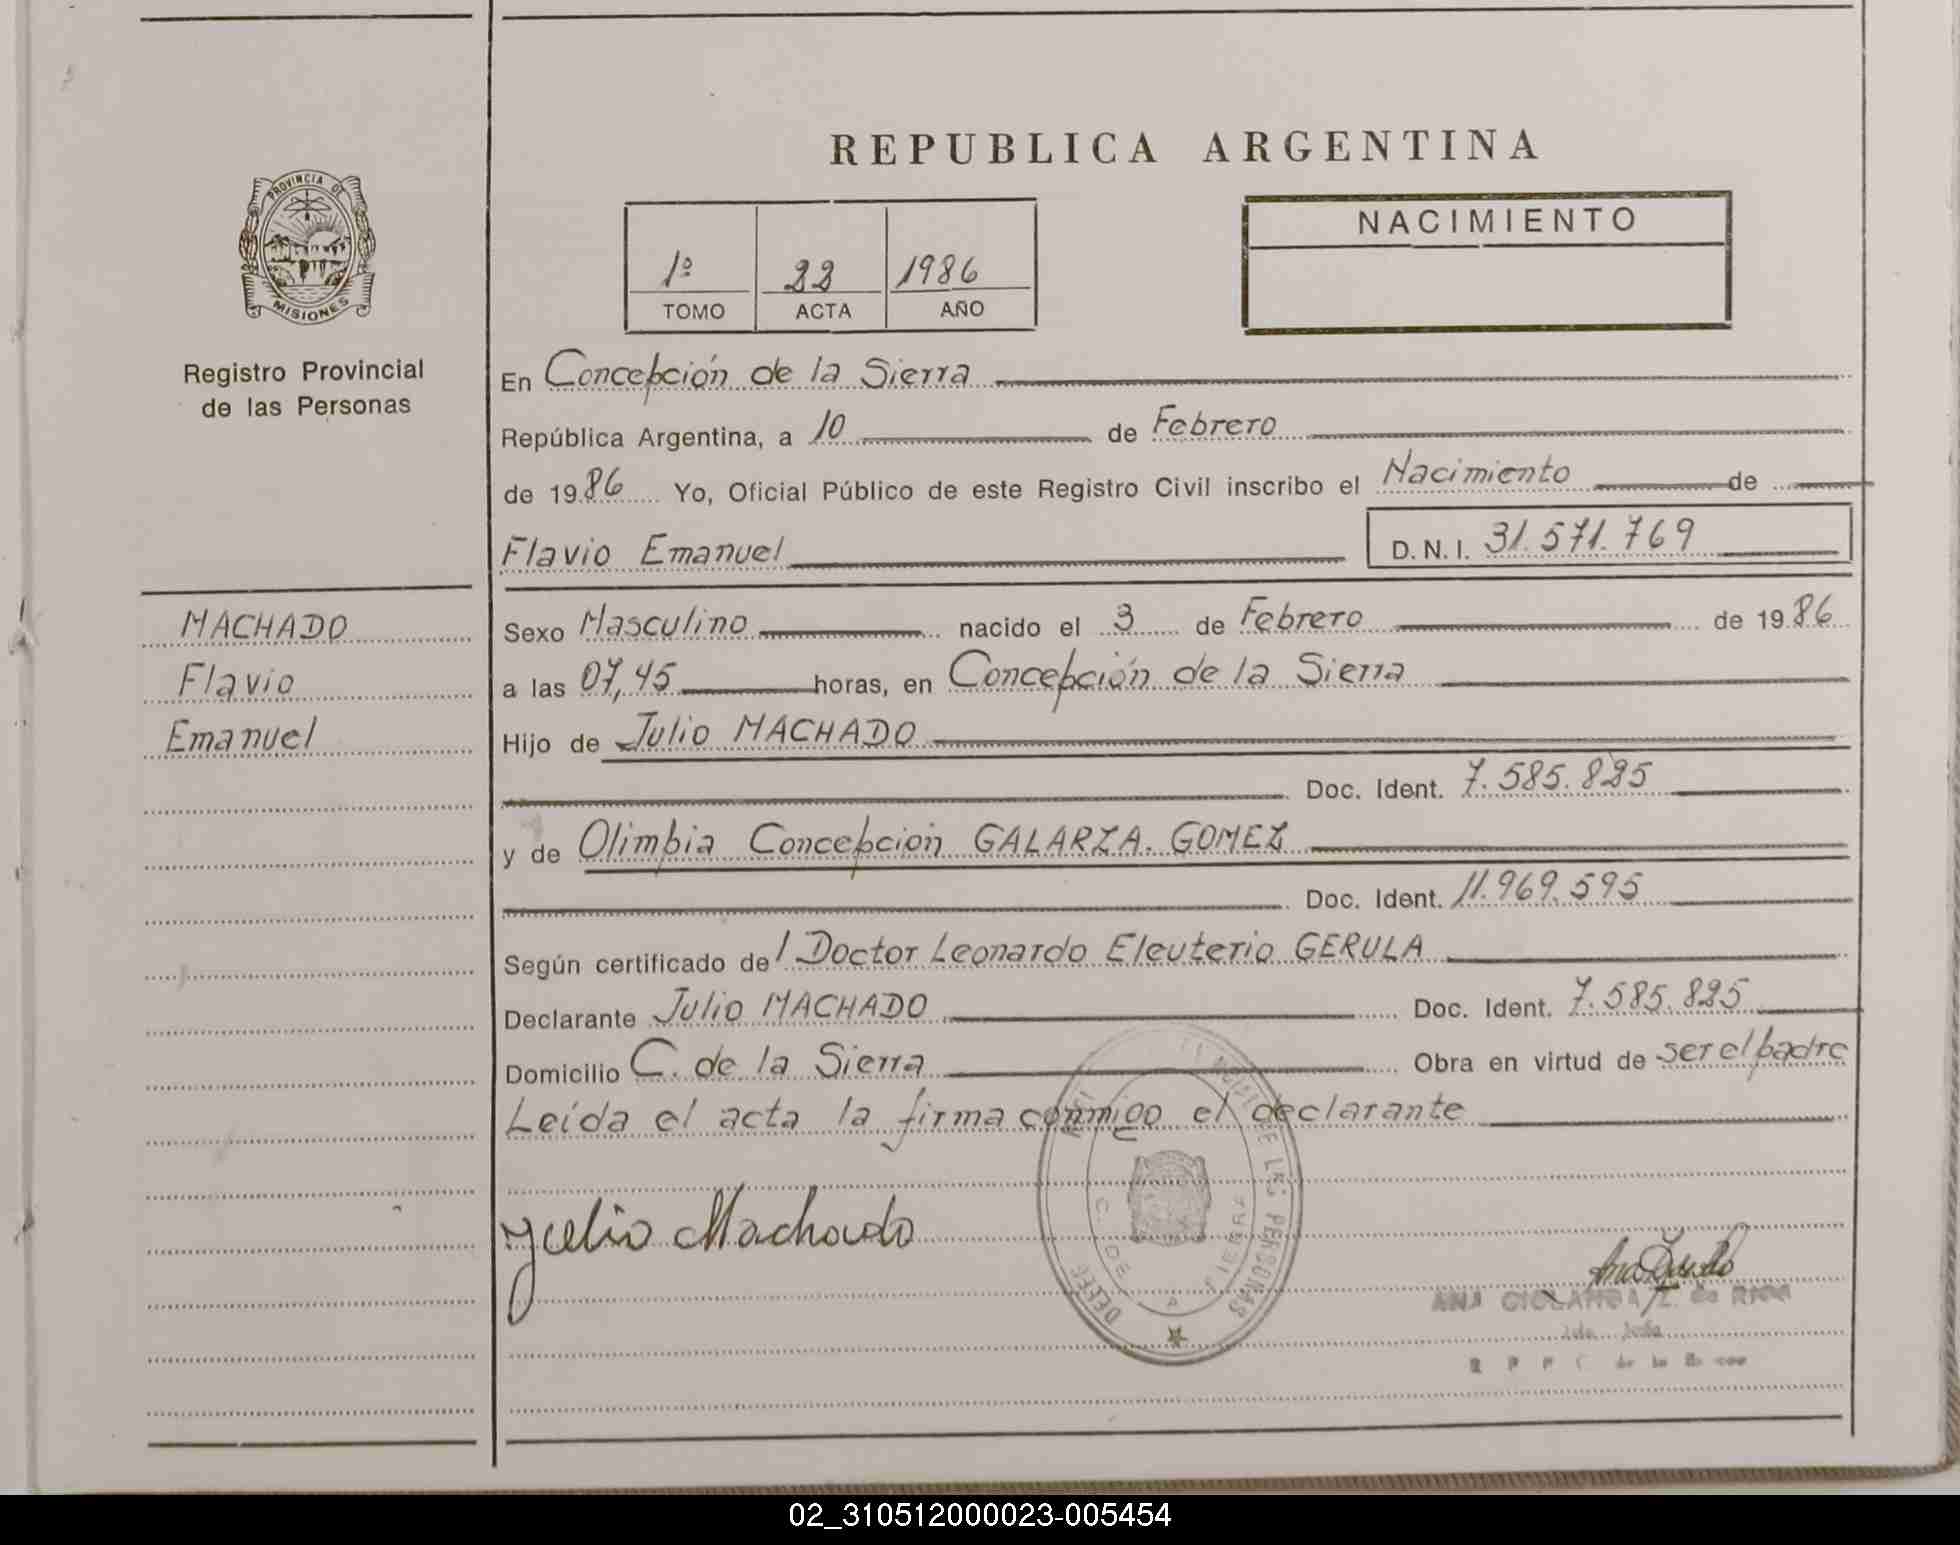 REPUBLICA ARGENTINA
PROVINCIA DE
MISIONES
Registro Provincial
de las Personas
NACIMIENTO
1º 22 1986
TOMO ACTA AÑO
En Concepción de la Sierra
República Argentina, a 10 de Febrero
de 1986 Yo, Oficial Público de este Registro Civil inscribo el Nacimiento de
Flavio Emanuel D.N.I. 31.571.769
MACHADO
Flavio
Emanuel
Sexo Masculino nacido el 3 de Febrero de 1986
a las 07,45 horas, en Concepción de la Sierra
Hijo de Julio MACHADO
Doc. Ident. 7.585.825
y de Olimbia Concepcion GALARZA. GOMEZ
Doc. Ident. 11.969.595
Según certificado del Doctor Leonardo Eleuterio GERULA
Declarante Julio MACHADO Doc. Ident. 7.585.825
Domicilio C. de la Sierra Obra en virtud de ser el padre
Leída el acta la firma conmigo el declarante
Julio Machado
DE LAS PERSONAS
C. DE SIERRA
ANA
02_310512000023-005454